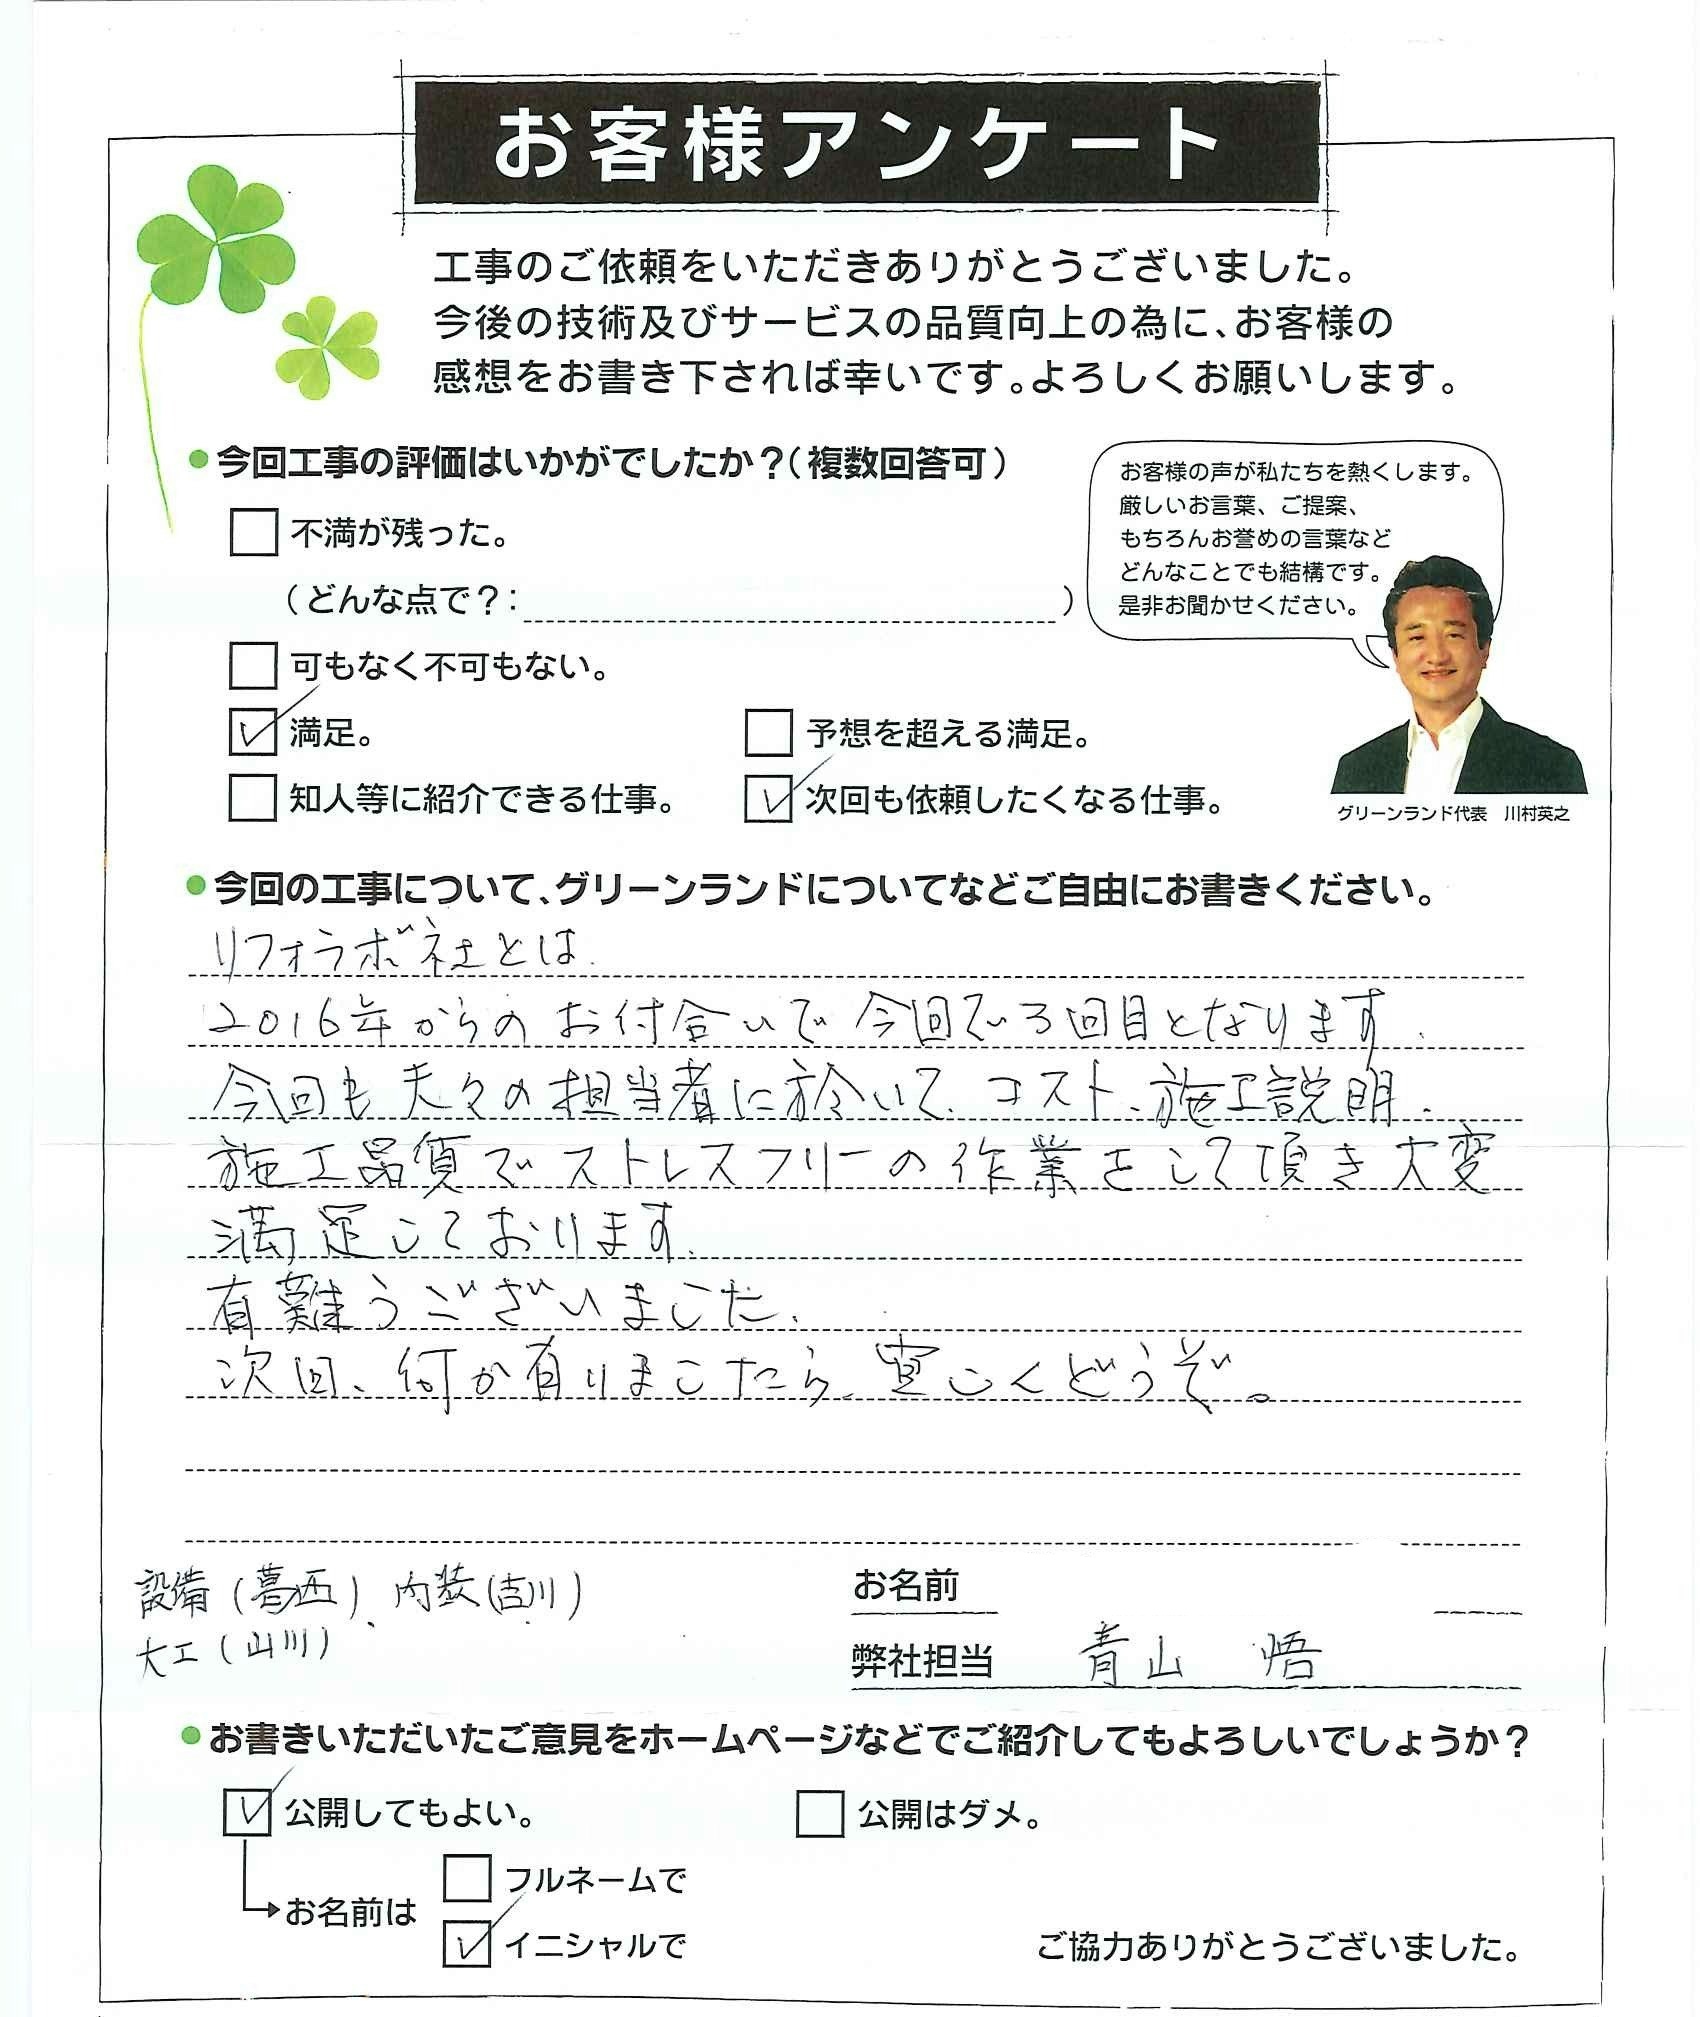 お客様アンケート
工事のご依頼をいただきありがとうございました。
今後の技術及びサービスの品質向上の為に、お客様の
感想をお書き下されば幸いです。よろしくお願いします。
●今回工事の評価はいかがでしたか？（複数回答可）
お客様の声が私たちを熱くします。
厳しいお言葉、ご提案、
もちろんお誉めの言葉など
どんなことでも結構です。
是非お聞かせください。
不満が残った。
（どんな点で？：　）
可もなく不可もない。
満足。
予想を超える満足。
知人等に紹介できる仕事。
次回も依頼したくなる仕事。
グリーンランド代表　川村英之
●今回の工事について、グリーンランドについてなどご自由にお書きください。
リフォラボ社とは
2016年からのお付合いで今回で3回目となります.
今回も夫々の担当者に於いて、コスト、施工説明、
施工品質でストレスフリーの作業をして頂き大変
満足しております.
有難うございました.
次回、何か有りましたら、宜しくどうぞ。
設備（葛西）、内装（吉川）
大工（山川）
お名前
弊社担当　青山　悟
●お書きいただいたご意見をホームページなどでご紹介してもよろしいでしょうか？
公開してもよい。
公開はダメ。
お名前は
フルネームで
イニシャルで
ご協力ありがとうございました。